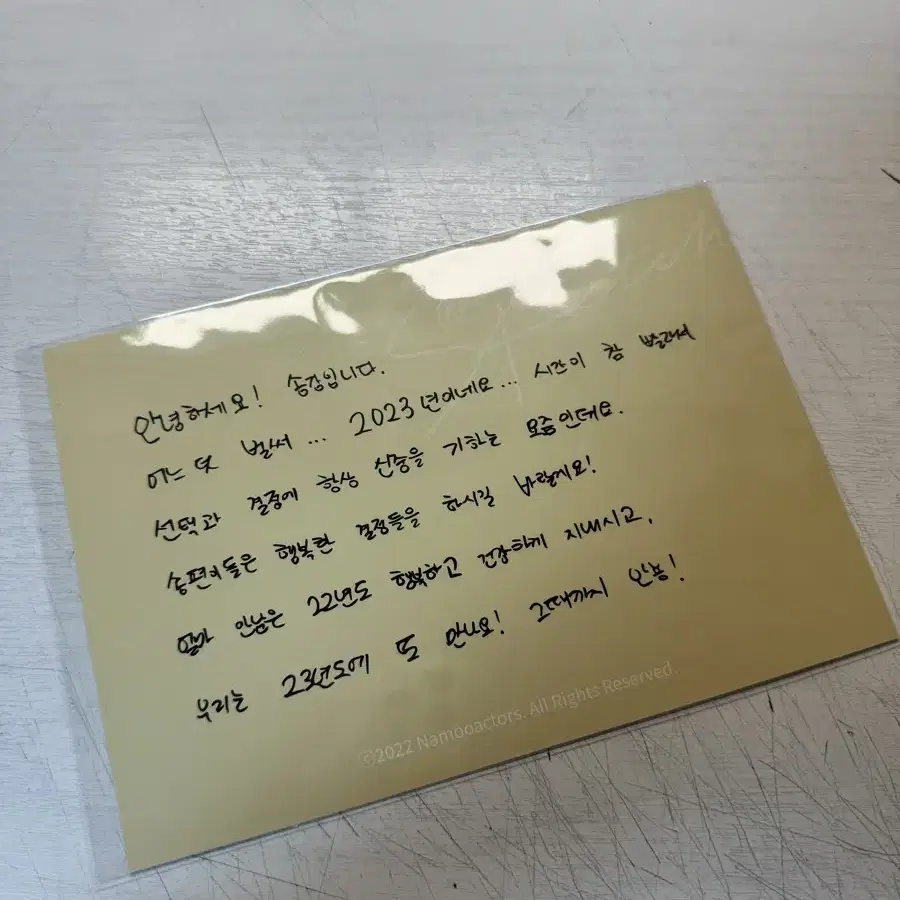 Sketch
안녕하세요! 송강입니다.
어느 덧 벌써 ... 2023년이네요... 시간이 참 빨라서
선택과 결정에 항상 신중을 기하는 요즘인데요.
송편이들은 행복한 결정들을 하시길 바랄게요!
얼마 안남은 22년도 행복하고 건강하게 지내시고,
우리는 23년도에 또 만나요! 그때까지 안뇽!
©2022 Namooactors. All Rights Reserved.